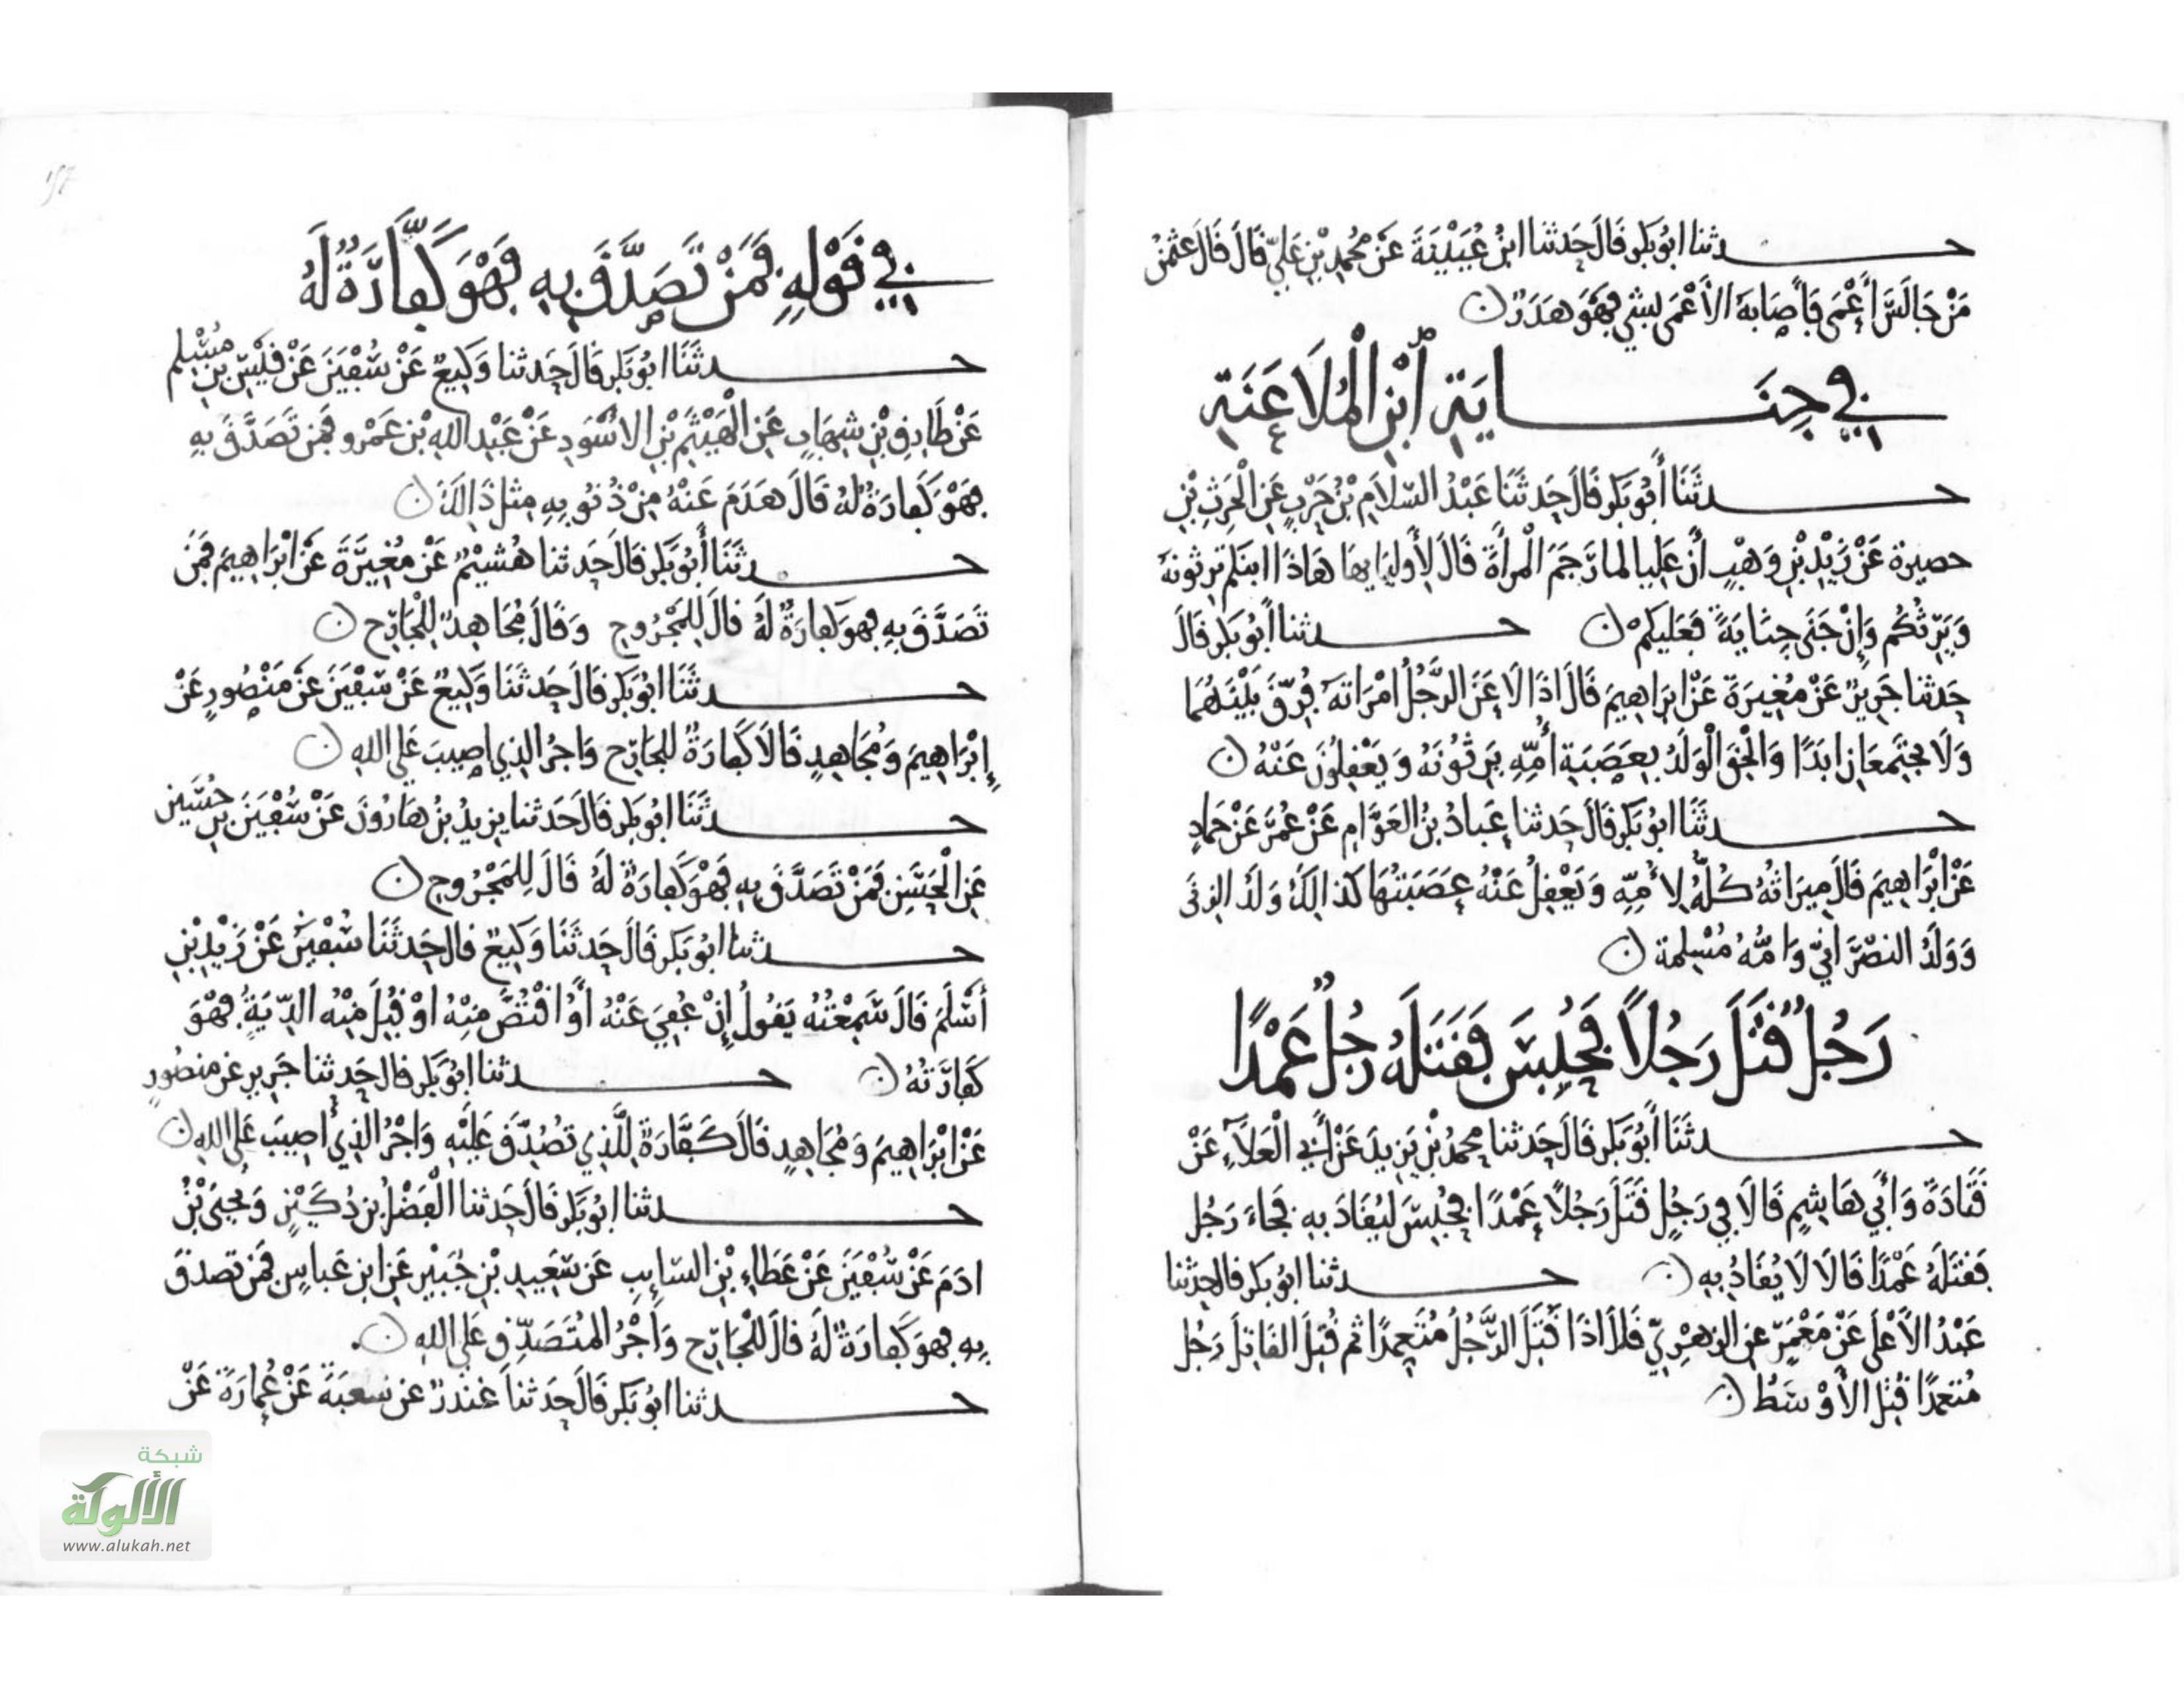 حدثنا ابو بكر قال حدثنا ابن عيينة عن محمد بن علي قال قال عثمن
من جالس أعمى فأصابه الأعمى بشي فهو هدر
في جناية ابن الملاعنة
حدثنا أبو بكر قال حدثنا عبد السلام بن حرب عن الحرث بن
حصيرة عن زيد بن وهب أن عليا لما رجم المرأة قال لأوليايها هاذا ابنكم ترثونه
ويرثكم وإن جنى جناية فعليكم حدثنا أبو بكر قال
حدثنا جرير عن مغيرة عن ابراهيم قال اذا لاعن الرجل امراته فرق بينهما
ولا يجتمعان ابدا والحق الولد بعصبة أمه يرثونه ويعقلون عنه
حدثنا ابو بكر قال حدثنا عباد بن العوام عن عمر عن حماد
عن ابراهيم قال ميراثه كله لأمه ويعقل عنه عصبتها كذالك ولد الزنى
وولد النصراني وامه مسلمة
رجل قتل رجلا فحبس فقتله رجل عمدا
حدثنا أبو بكر قال حدثنا محمد بن يزيد عن أبي العلاء عن
قتادة وأبي هاشم قالا في رجل قتل رجلا عمدا فحبس ليقاد به فجاء رجل
فقتله عمدا قالا لا يقاد به حدثنا ابو بكر قال حدثنا
عبد الأعلى عن معمر عن الزهري قال اذا قتل الرجل متعمدا ثم قتل القاتل رجل
متعمدا قتل الأوسط
في قوله فمن تصدق به فهو كفارة له
حدثنا ابو بكر قال حدثنا وكيع عن سفين عن قيس بن مسلم
عن طارق بن شهاب عن الهيثم بن الاسود عن عبد الله بن عمرو فمن تصدق به
فهو كفارة له قال هدم عنه من ذنوبه مثل ذالك
حدثنا أبو بكر قال حدثنا هشيم عن مغيرة عن ابراهيم فمن
تصدق به فهو كفارة له قال للمجروح وقال مجاهد للجارح
حدثنا ابو بكر قال حدثنا وكيع عن سفين عن منصور عن
إبراهيم ومجاهد قالا كفارة للجارح واجر الذي اصيب على الله
حدثنا ابو بكر قال حدثنا يزيد بن هارون عن سفين بن حسين
عن الحسن فمن تصدق به فهو كفارة له قال للمجروح
حدثنا ابو بكر قال حدثنا وكيع قال حدثنا سفين عن زيد بن
أسلم قال سمعته يقول إن عفي عنه أو اقتص منه او قبل منه الدية فهو
كفارته حدثنا ابو بكر قال حدثنا جرير عن منصور
عن ابراهيم ومجاهد قال كفارة للذي تصدق عليه واجر الذي أصيب على الله
حدثنا ابو بكر قال حدثنا الفضل بن دكين ويحيى بن
ادم عن سفين عن عطاء بن السايب عن سعيد بن جبير عن ابن عباس فمن تصدق
به فهو كفارة له قال للجارح وأجر المتصدق على الله
حدثنا ابو بكر قال حدثنا غندر عن شعبة عن عمارة عن
شبكة
الألوكة
www.alukah.net